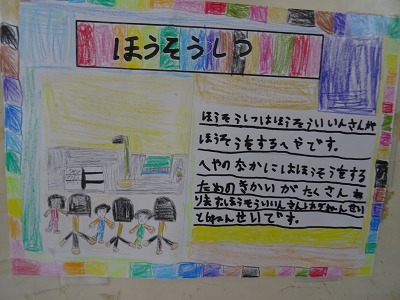 ほうそうしつ
ほうそうしつはほうそういいんさんが
ほうそうをするへやです。
へやのなかにはほうそうをする
ためのきかいがたくさん
ります。ほうそういいんさんは
せいです。